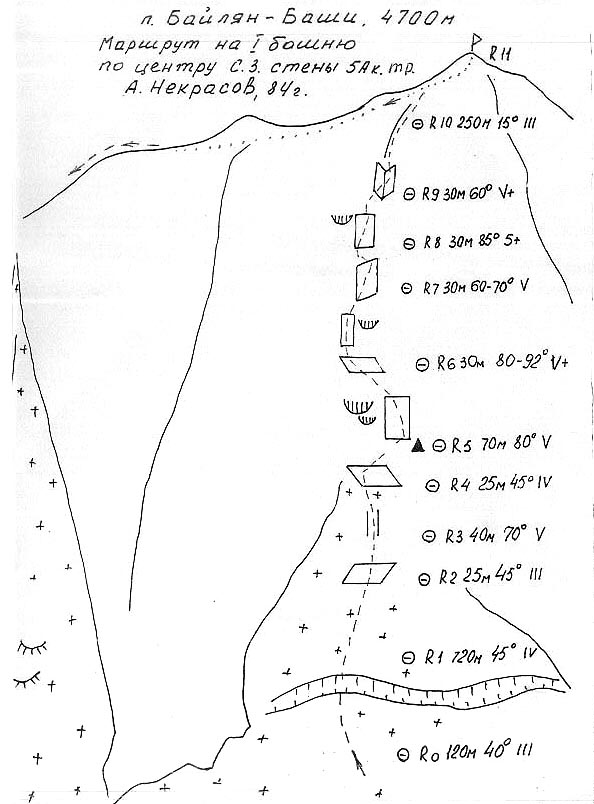 п. Байлян-Баши, 4700м
Маршрут на I башню
по центру С.З. стены 5Ак.тр.
А. Некрасов, 84г.
R11
R10 250м 15° III
R9 30м 60° V+
R8 30м 85° 5+
R7 30м 60-70° V
R6 30м 80-92° V+
R5 70м 80° V
R4 25м 45° IV
R3 40м 70° V
R2 25м 45° III
R1 720м 45° IV
R0 120м 40° III